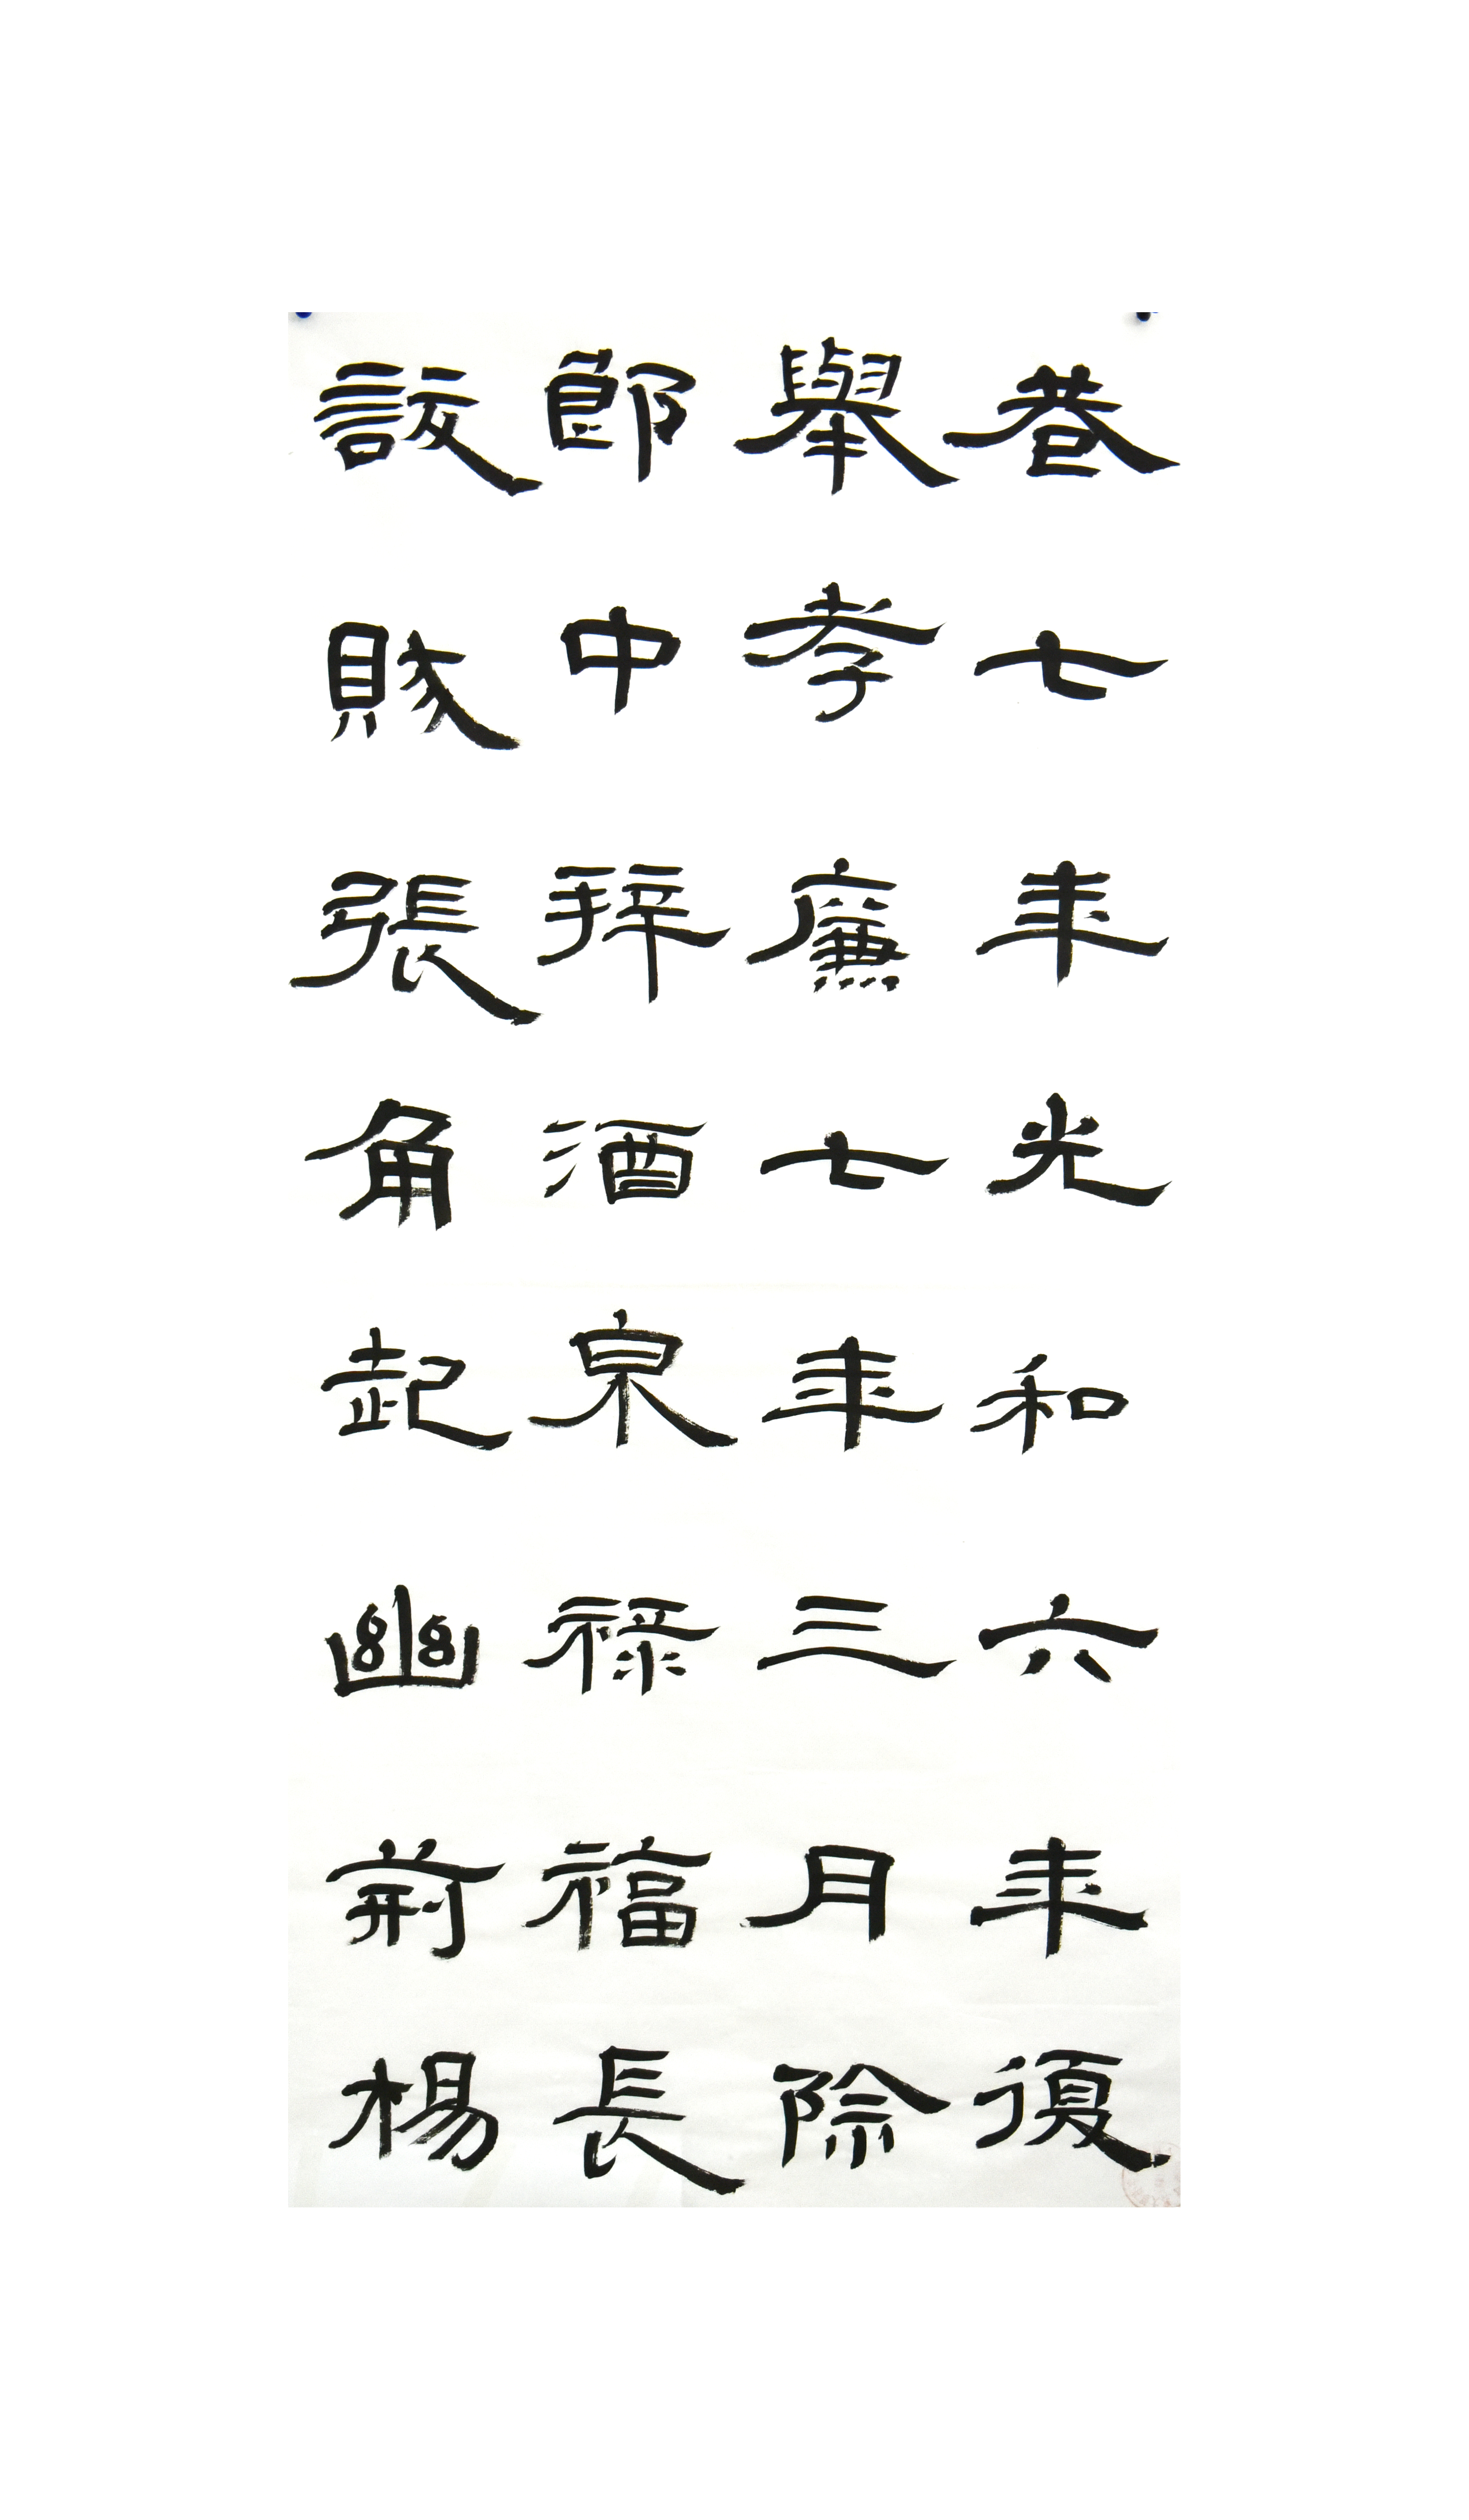 巷七年光和六年復
舉孝廉七年三月除
郎中拜酒泉祿福長
訞賊張角起幽荊楊